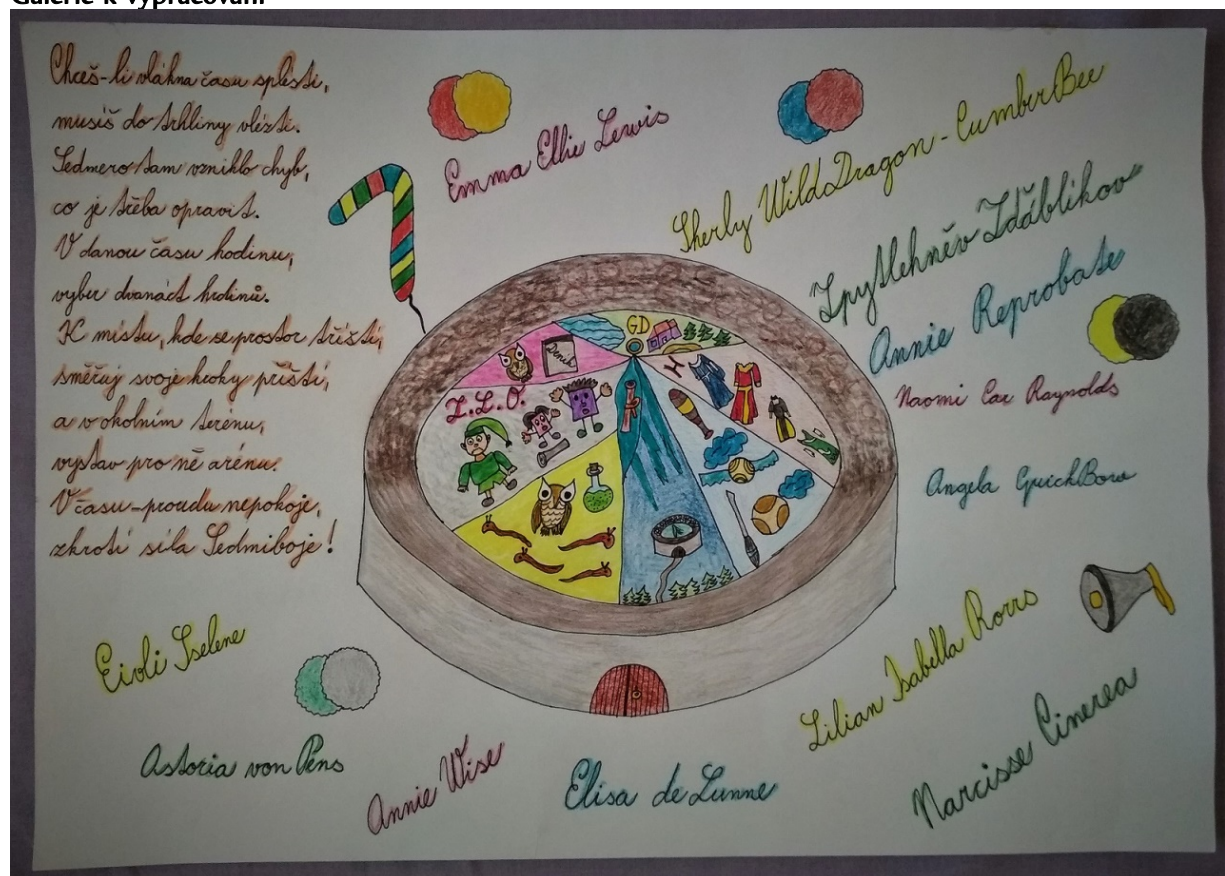 Galerie k vypracování
Chceš-li vlákna času splésti,
musíš do trhliny vlézti.
Sedmero tam vzniklo chyb,
co je třeba opravit.
V danou času hodinu,
vyber dvanáct hrdinů.
K místu, kde se prostor tříští,
směřuj svoje kroky příští,
a v okolním terénu,
vystav pro ně arénu.
V času-proudu nepokoje,
zkrotí síla Sedmiboje!
Emma Ellie Lewis
Sherly WildDragon-CumberBee
Zpytlehněv Zďáblíkov
Annie Reprobate
Naomi Car Raynolds
Angela QuickBow
GD
Deník
H
Z.L.O.
Eioli Iselene
Astoria von Pens
Annie Wise
Elisa de Lunne
Lilian Isabella Rorrs
Narcisse Cinerea